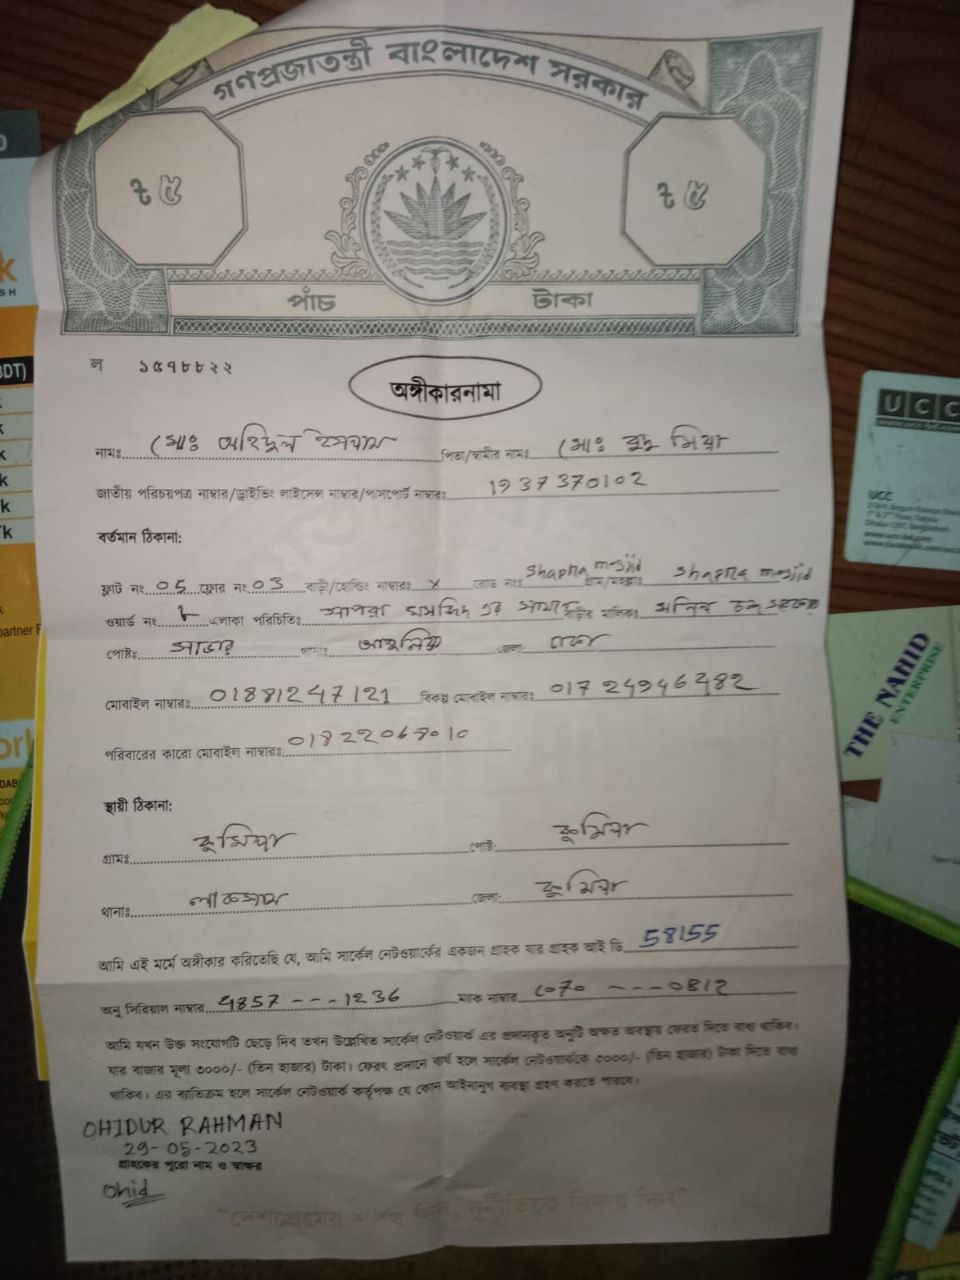 গণপ্রজাতন্ত্রী বাংলাদেশ সরকার
৳ ৫ ৳ ৫
পাঁচ টাকা
ল ১৫৭৮৮২২
অঙ্গীকারনামা
নামঃ মোঃ অহিদুল ইসলাম পিতা/স্বামীর নামঃ মোঃ বুদু মিয়া
জাতীয় পরিচয়পত্র নাম্বার/ড্রাইভিং লাইসেন্স নাম্বার/পাসপোর্ট নাম্বারঃ 1937370102
বর্তমান ঠিকানা:
ফ্লাট নং 05 ফ্লোর নং 03 বাড়ী/হোল্ডিং নাম্বারঃ x রোড নংঃ Shapna mosjid গ্রাম/মহল্লাঃ Shapna mosjid
ওয়ার্ড নং এলাকা পরিচিতিঃ মসজিদ এর সামনে বাড়ীর মালিকঃ
পোষ্টঃ সাভার থানাঃ আশুলিয়া জেলাঃ ঢাকা
মোবাইল নাম্বারঃ 01881247121 বিকল্প মোবাইল নাম্বারঃ 01724946482
পরিবারের কারো মোবাইল নাম্বারঃ
স্থায়ী ঠিকানা:
গ্রামঃ কুমিল্লা পোষ্ট: কুমিল্লা
থানাঃ লাকসাম জেলা: কুমিল্লা
আমি এই মর্মে অঙ্গীকার করিতেছি যে, আমি সার্কেল নেটওয়ার্কের একজন গ্রাহক যার গ্রাহক আই ডি 58155
অনু সিরিয়াল নাম্বার 4857 --- 1236 ম্যাক নাম্বার 6070 --- 0812
আমি যখন উক্ত সংযোগটি ছেড়ে দিব তখন উল্লেখিত সার্কেল নেটওয়ার্ক এর প্রদানকৃত অনুটি অক্ষত অবস্থায় ফেরত দিতে বাধ্য থাকিব।
যার বাজার মূল্য ৩০০০/- (তিন হাজার) টাকা। ফেরৎ প্রদানে ব্যর্থ হলে সার্কেল নেটওয়ার্ককে ৩০০০/- (তিন হাজার) টাকা দিতে বাধ্য
থাকিব। এর ব্যতিক্রম হলে সার্কেল নেটওয়ার্ক কর্তৃপক্ষ যে কোন আইনানুগ ব্যবস্থা গ্রহণ করতে পারবে।
OHIDUR RAHMAN
29-05-2023
গ্রাহকের পুরো নাম ও স্বাক্ষর
Ohid
"দেশপ্রেমের শপথ নিন, দুর্নীতিকে বিদায় দিন"
UCC
UCC
THE NAHID
ENTERPRISE